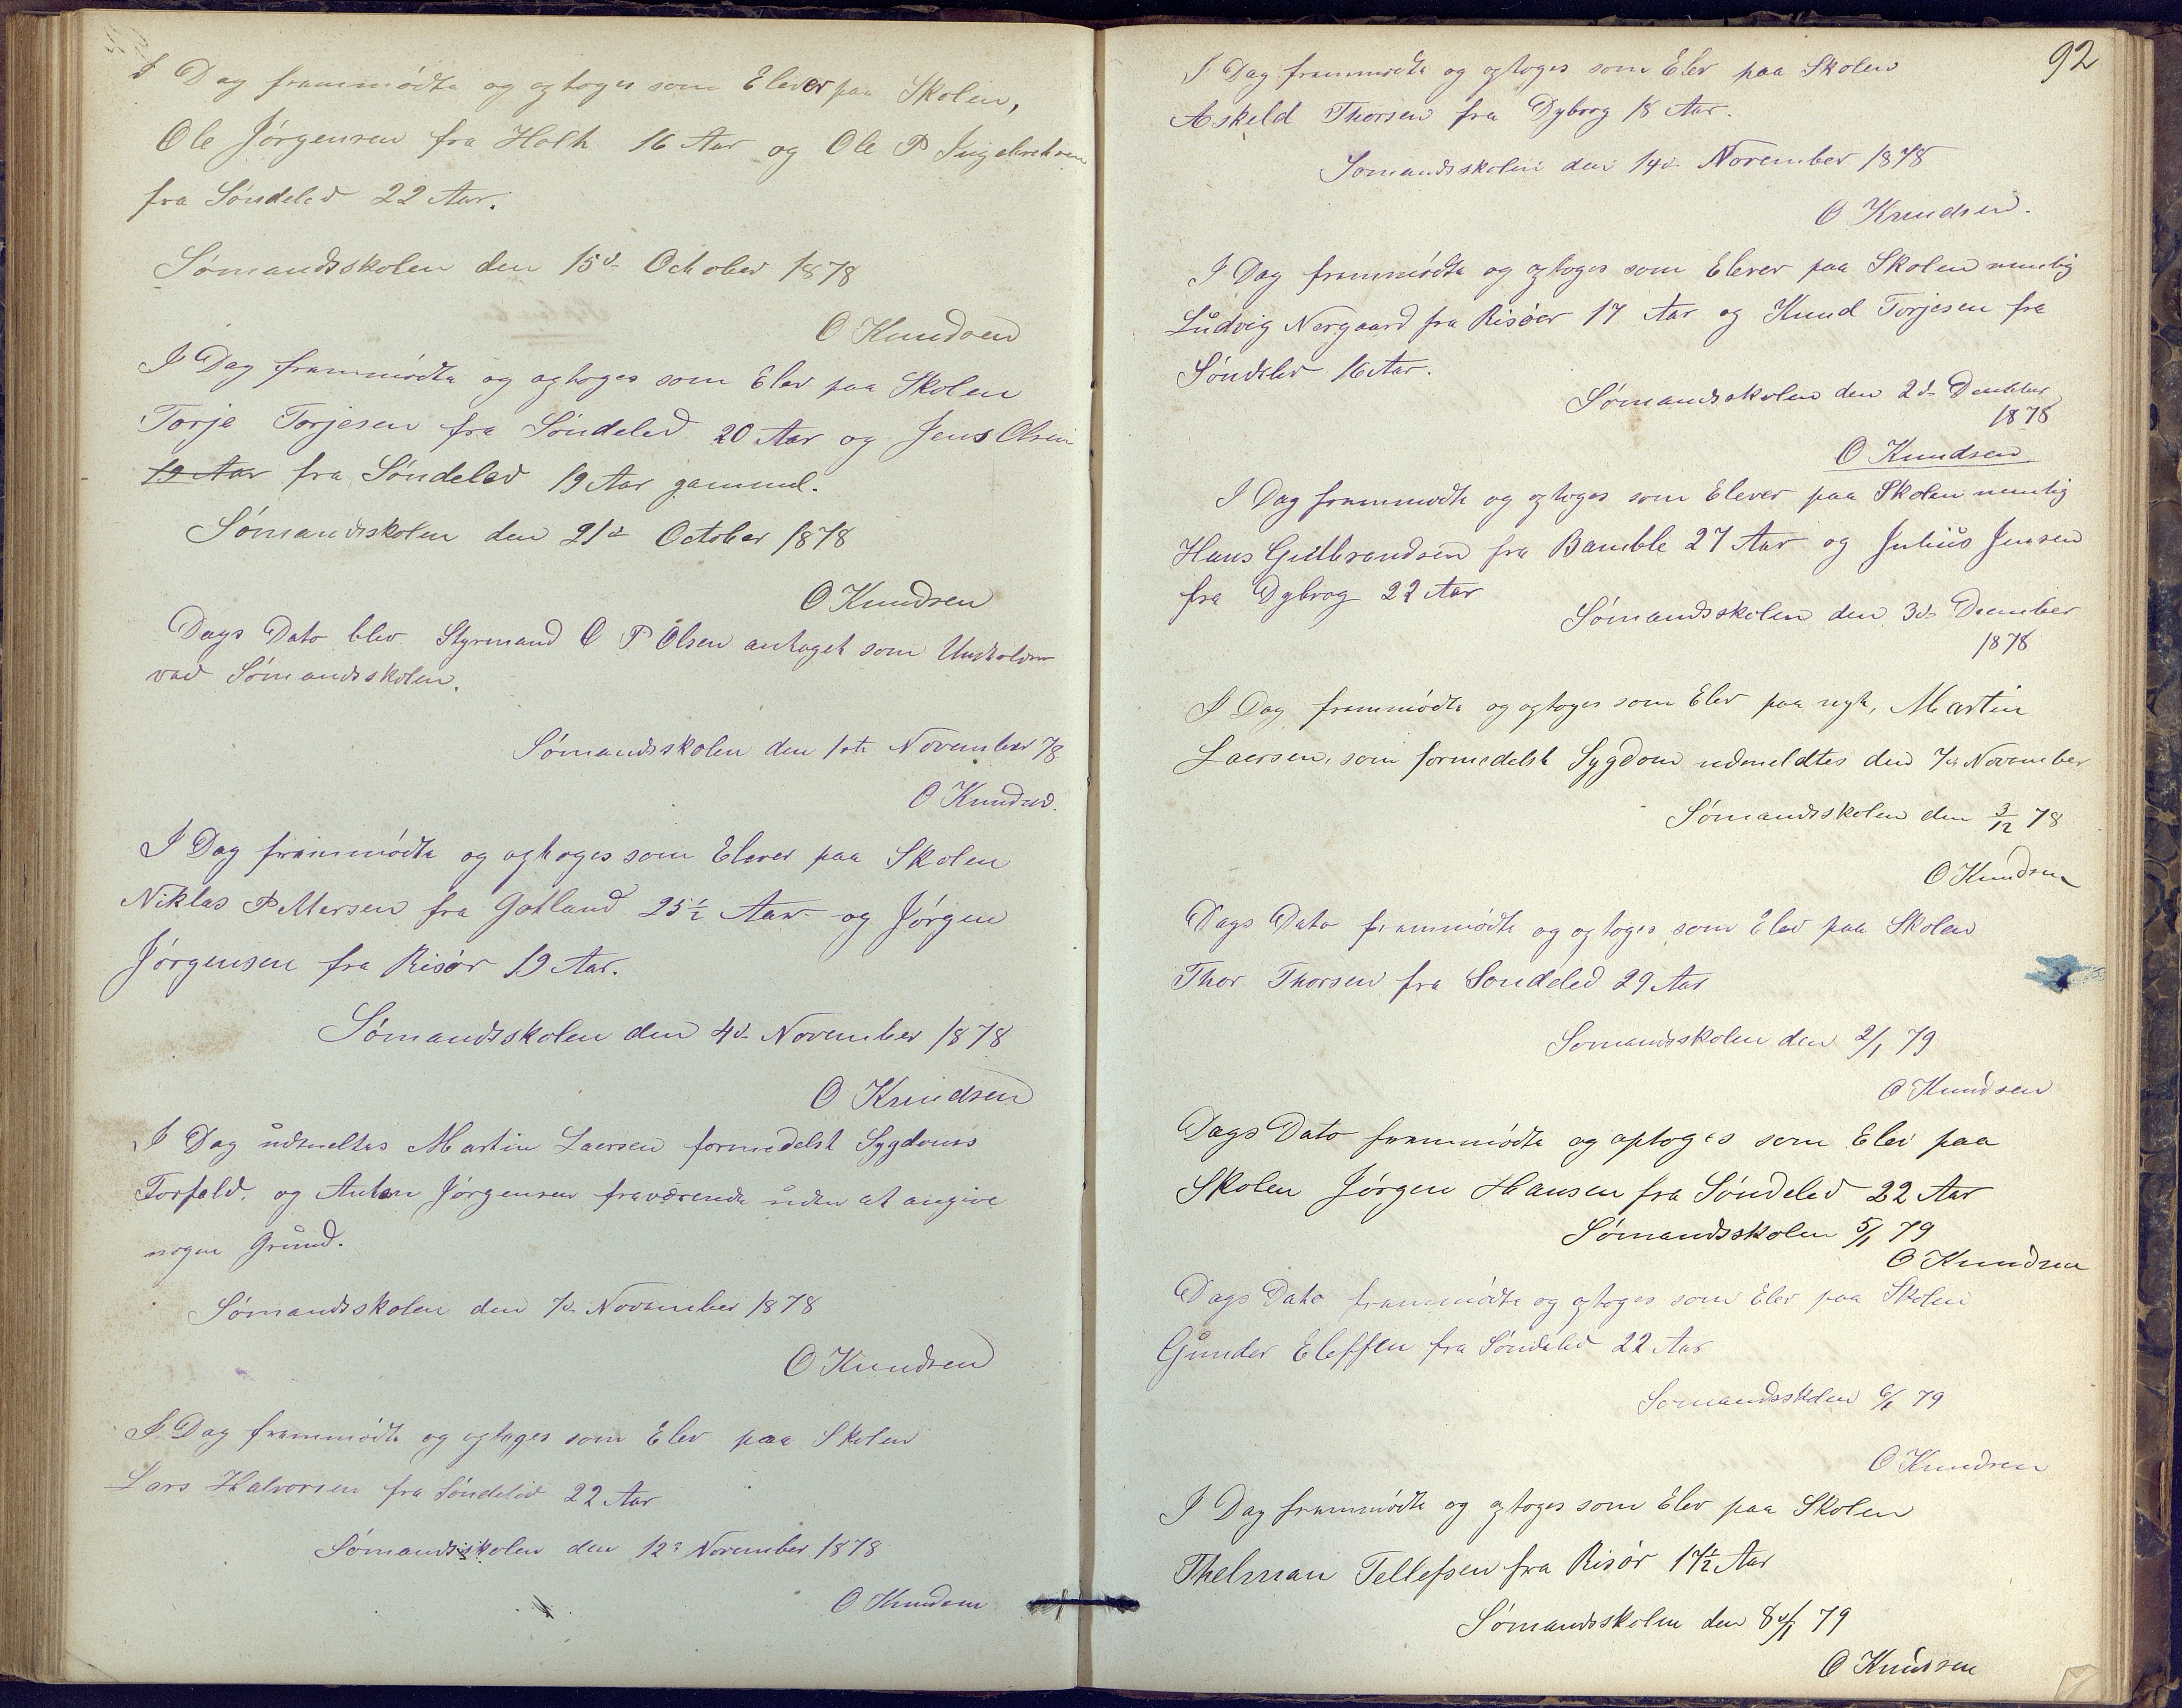 I Dag fremmødte og optoges som Elever paa Skolen,
Ole Jørgensen fra Holt 16 Aar og Ole P Ingebretsen
fra Søndeled 22 Aar.
Sømandsskolen den 15de October 1878
O Knudsen
I Dag fremmødte og optoges som Elev paa Skolen
Torje Torjesen fra Søndeled 20 Aar og Jens Olsen
19 Aar fra Søndeled 19 Aar gammel.
Sømandsskolen den 21de October 1878
O Knudsen
Dags Dato blev Styrmand O P Olsen antaget som
ved Sømandsskolen.
Sømandsskolen den 1ste November 78
O Knudsen.
I Dag fremmødte og optoges som Elever paa Skolen
Niklas Pettersen fra Gotland 25½ Aar og Jørgen
Jørgensen fra Risør 19 Aar.
Sømandsskolen den 4de November 1878
O Knudsen
I Dag udmeltes Martin Laersen formedelst Sygdoms
Forfald, og Anton Jørgensen fraværende uden at angive
nogen Grund.
Sømandsskolen den 7de November 1878
O Knudsen
I Dag fremmødte og optoges som Elev paa Skolen
Lars Halvorsen fra Søndeled 22 Aar
Sømandsskolen den 12te November 1878
O Knudsen
92
I Dag fremmødte og optoges som Elev paa Skolen
Askeld Thorsen fra Dybvog 18 Aar.
Sømandsskolen den 14de November 1878
O Knudsen.
I Dag fremmødte og optoges som Elever paa Skolen nemlig
Ludvig Nergaard fra Risøer 17 Aar og Knud Torjesen fra
Søndeled 16 Aar.
Sømandsskolen den 2de December
1878
O Knudsen
I Dag fremmødte og optoges som Elever paa Skolen nemlig
Hans Gulbrandsen fra Bamble 27 Aar og Julius Jensen
fra Dybvog 22 Aar
Sømandsskolen den 3de December
1878
I Dag fremmødte og optoges som Elev paa nyt, Martin
Laersen, som formedelst Sygdom udmeldtes den 7de November
Sømandsskolen den 3/12 78
O Knudsen
Dags Dato fremmødte og optoges som Elev paa Skolen
Thor Thorsen fra Søndeled 29 Aar
Sømandsskolen den 2/1 79
O Knudsen
Dags Dato fremmødte og optoges som Elev paa
Skolen Jørgen Hansen fra Søndeled 22 Aar
Sømandsskolen 5/1 79
O Knudsen
Dags Dato fremmødte og optoges som Elev paa Skolen
Gunder Eleffsen fra Søndeled 22 Aar
Sømandsskolen 6/1 79
O Knudsen
I Dag fremmødte og optoges som Elev paa Skolen
Thelman Tellefsen fra Risør 17½ Aar
Sømandsskolen den 8de/1 79
O Knudsen